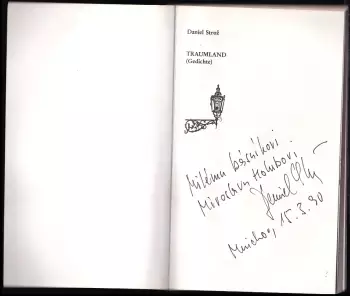 Daniel Strož
TRAUMLAND
(Gedichte)
Milému básníkovi
Miroslavu Holubovi,
Daniel
Mnichov, 15.3.90